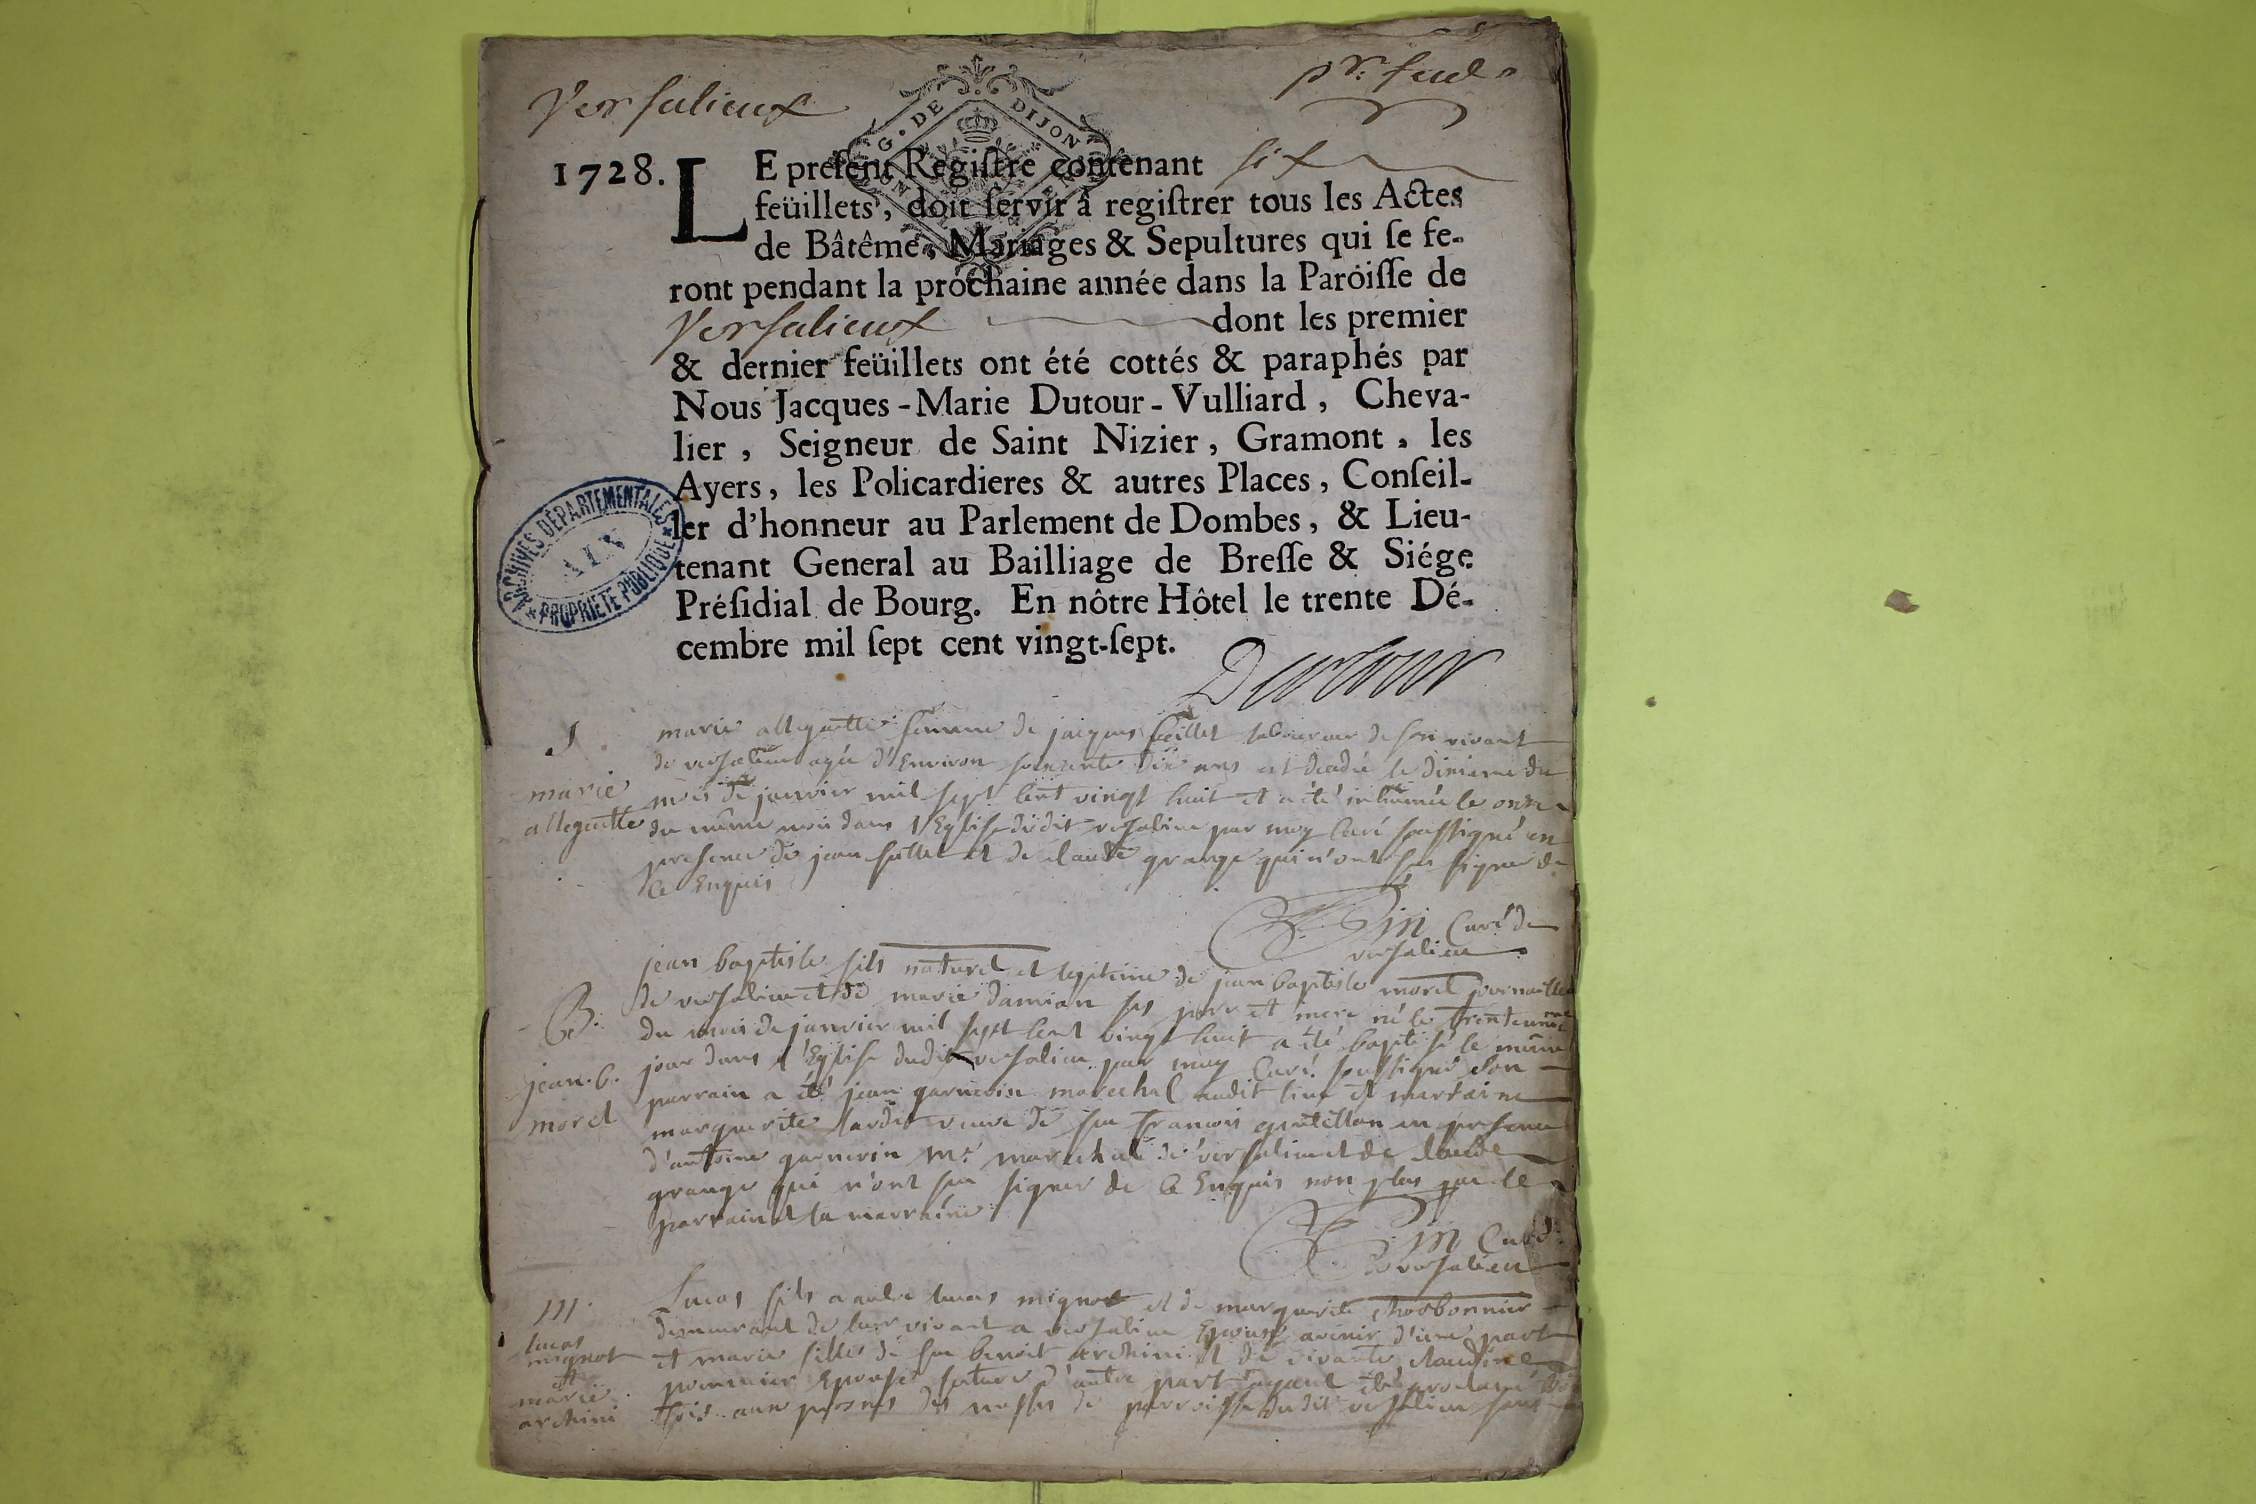 Versalieux
pr. feuil
G. DE DIJON
1728. LE preſent Regiſtre contenant six
feüillets, doit ſervir à regiſtrer tous les Actes
de Bâtême, Mariages & Sepultures qui ſe fe-
ront pendant la prochaine année dans la Paroiſſe de
Versalieux dont les premier
& dernier feüillets ont été cottés & paraphés par
Nous Jacques-Marie Dutour-Vulliard, Cheva-
lier, Seigneur de Saint Nizier, Gramont, les
Ayers, les Policardieres & autres Places, Conſeil-
ler d'honneur au Parlement de Dombes, & Lieu-
tenant General au Bailliage de Breſſe & Siége
Préſidial de Bourg. En nôtre Hôtel le trente Dé-
cembre mil ſept cent vingt-ſept.
ARCHIVES DÉPARTEMENTALES
AIN
PROPRIÉTÉ PUBLIQUE
Dutour
S.
marie
alleguette
marie alleguette femme de jacques laboureur de son vivant
de versalieu agée d'Environ soixante dix ans est decedée le dixieme du
mois de janvier mil sept cent vingt huit et a été inhumée le onze
du même mois dans l'Eglise dudit versalieu par moy Curé soussigné en
presence de jean et de claude grange qui n'ont sçu signer de
ce Enquis
Curé de
versalieu
B.
jean. b.
morel
jean baptiste fils naturel et legitime de jean baptiste morel journaillier
de versalieu et de marie damian ses pere et mere né le trente unieme
du mois de janvier mil sept cent vingt huit a été baptisé le même
jour dans l'Eglise dudit versalieu par moy Curé soussigné son
parrain a été jean garnerin marechal audit lieu et marraine
marguerite veuve de feu francois en presence
d'antoine garnerin me. marechal de versalieu et de claude
grange qui n'ont sçu signer de ce Enquis non plus que le
parrain et la marraine
Curé de
versalieu
m.
lucas
mignot
et
marie
archini
Lucas fils a autre lucas mignot et de marguerite charbonnier
demeurant de leur vivant a versalieu Epoux avenir d'une part
et marie fille de feu benoit archini et de vivante claudine
pommier Epouse future d'autre part ayant été proclamé
fois aux prones des messes de parroisse dudit versalieu sans